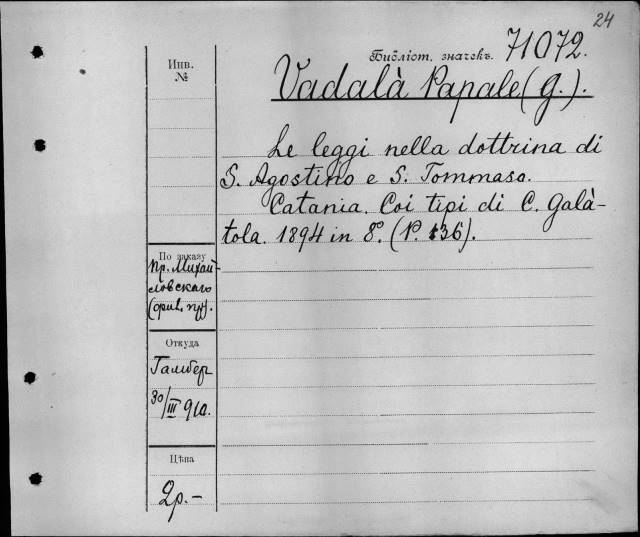 24
Библіот. значекъ. 71072.
Инв.
№
Vadalà Papale (G.).
Le leggi nella dottrina di
S. Agostino e S. Tommaso.
Catania. Coi tipi di C. Galà-
tola. 1894 in 8º. (P. 136).
По заказу
Пр. Михай-
ловскаго
Откуда
Гамбер
30/III 910.
Цѣна
2р.-